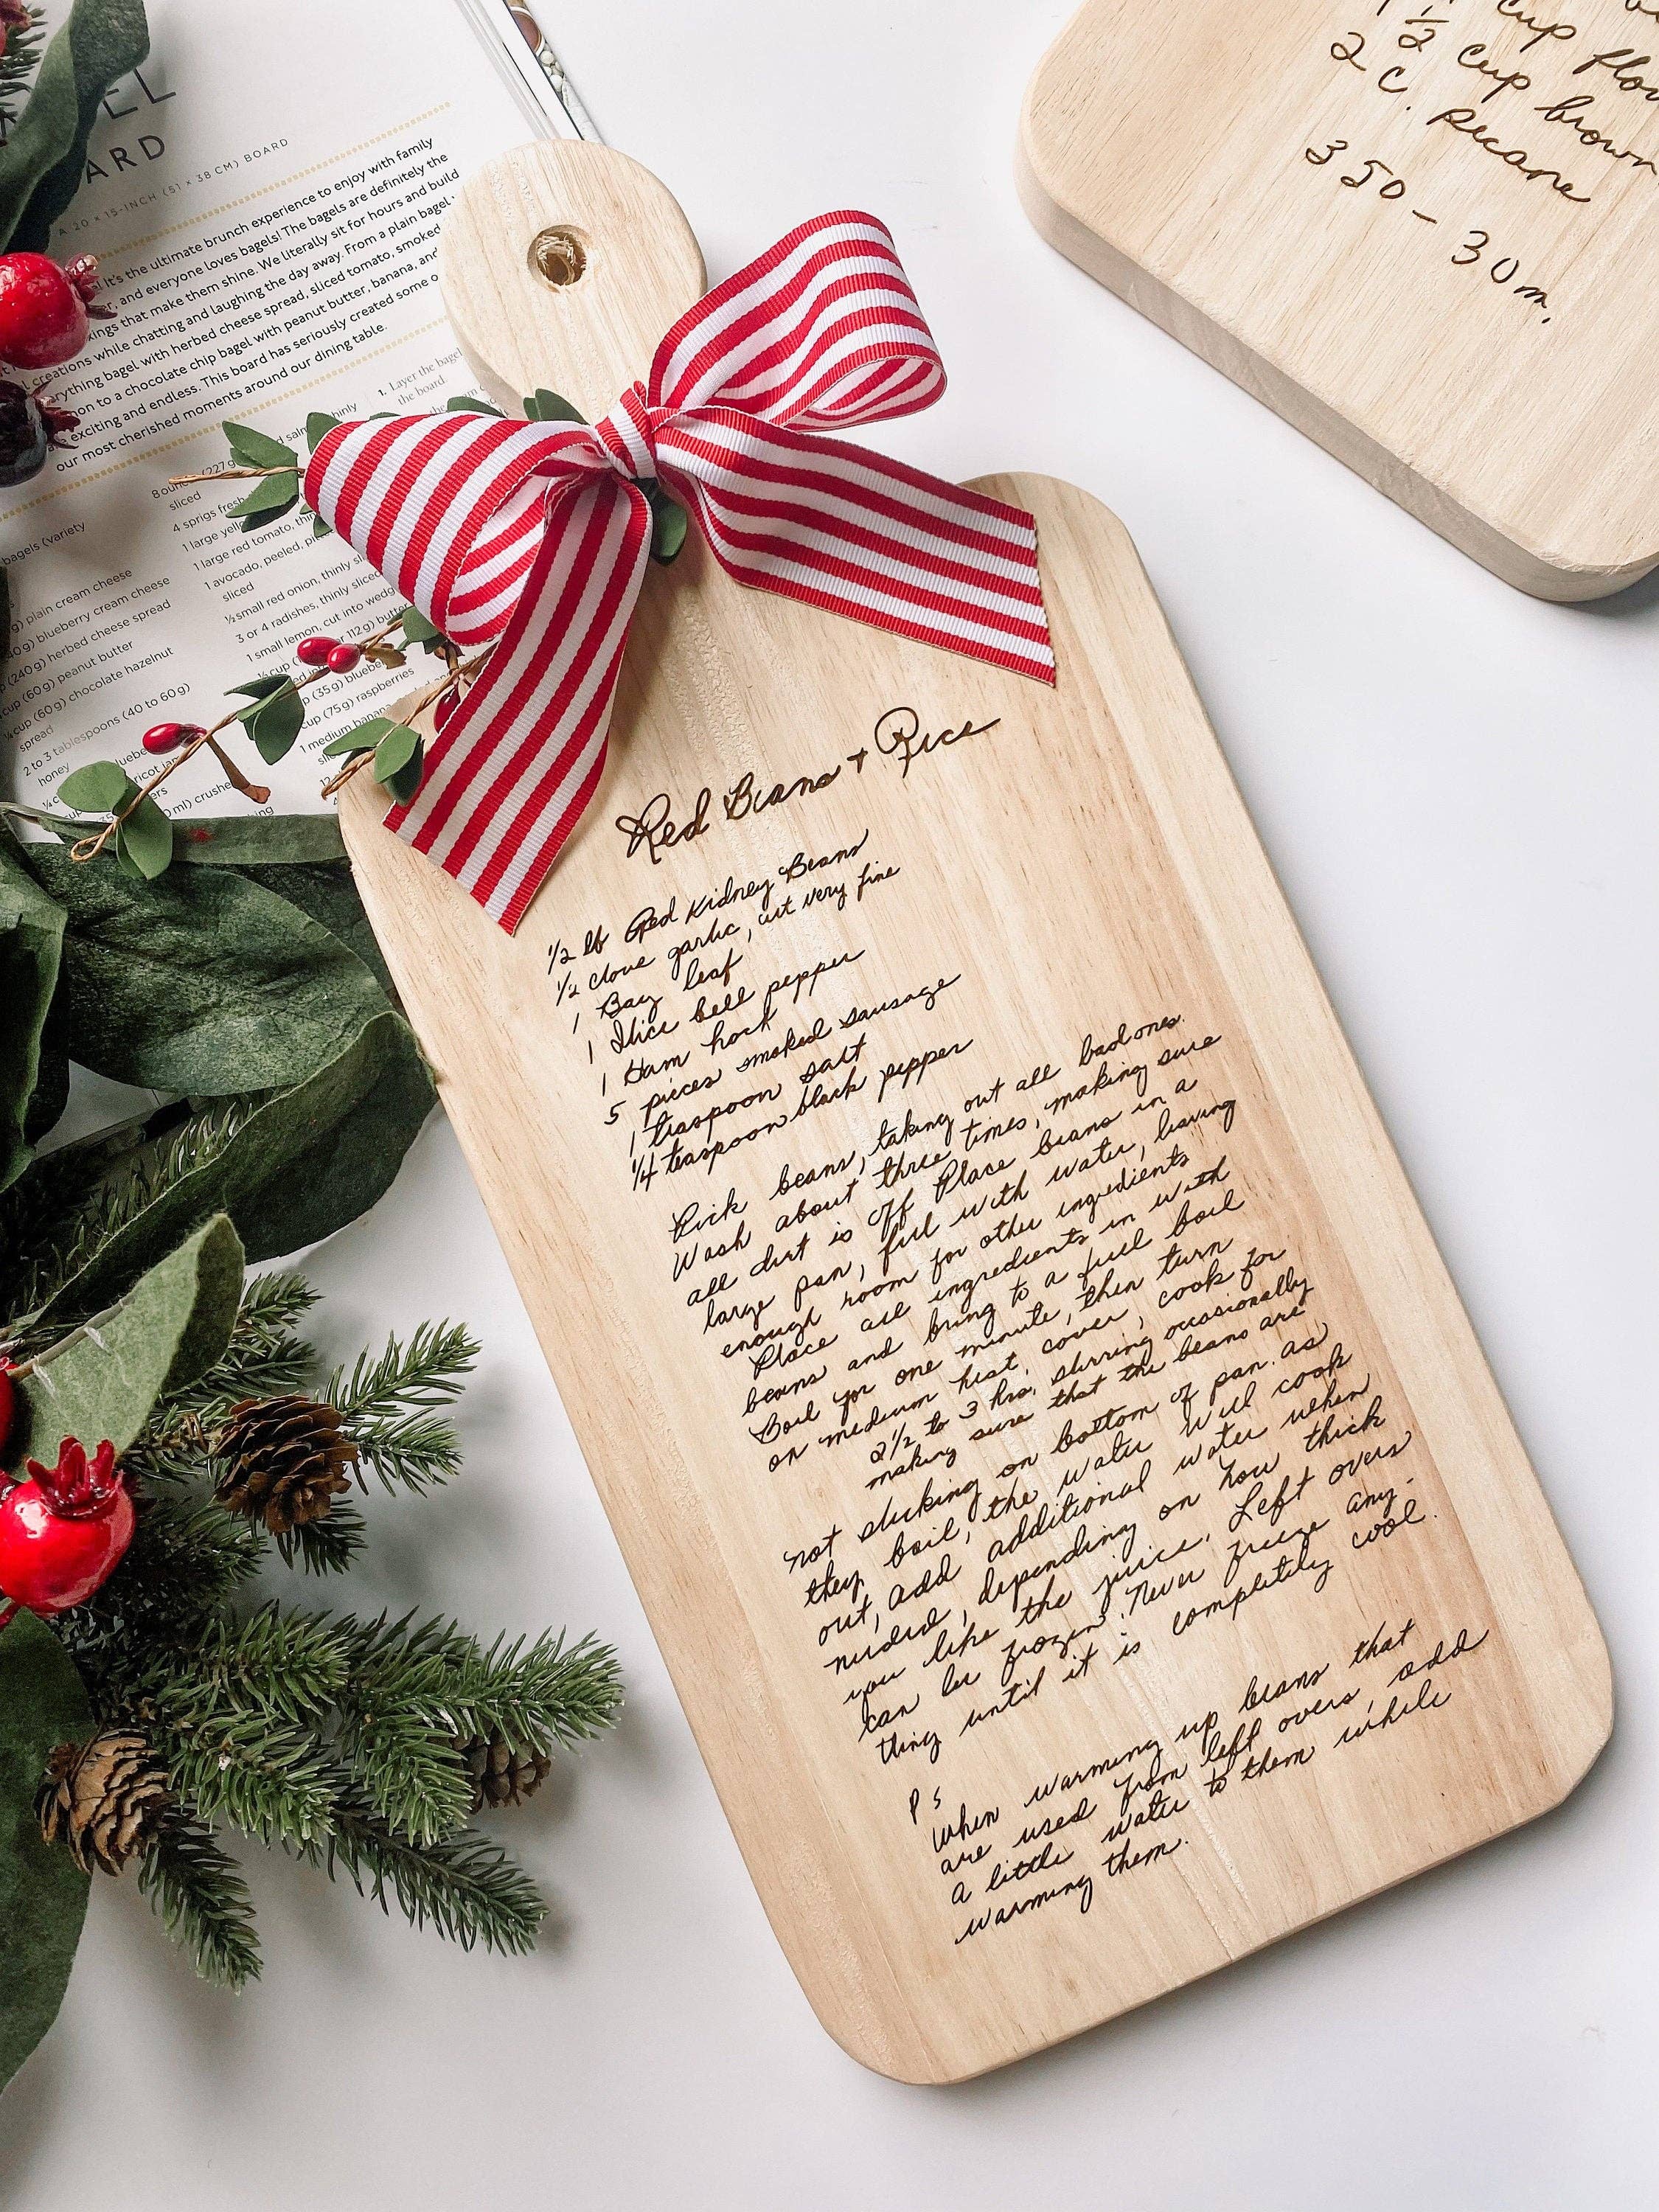 EL
ARD
A 20 × 15-INCH (51 × 38 CM) BOARD
It's the ultimate brunch experience to enjoy with family
and everyone loves bagels! The bagels are definitely the
that make them shine. We literally sit for hours and build
creations while chatting and laughing the day away. From a plain bagel
bagel with herbed cheese spread, sliced tomato, smoked
to a chocolate chip bagel with peanut butter, banana, and
exciting and endless. This board has seriously created some o
our most cherished moments around our dining table.
bagels (variety
plain cream cheese
blueberry cream cheese
(240g) herbed cheese spread
cup (60g) peanut butter
cup (60g) chocolate hazelnut
spread
2 to 3 tablespoons (40 to 60g)
honey
(227g
sliced
4 sprigs fresh
1 large
1 large red tomato,
1 avocado, peeled,
sliced
½ small red onion, thinly
3 or 4 radishes, thinly sliced
1 small lemon, cut into wedg
112g)
(35g)
cup (75g) raspberries
1 medium banana
1. Layer the bagel
the board.
Red Beans + Rice
1/2 lb Red Kidney Beans
1/2 clove garlic, cut very fine
1 Bay leaf
1 Slice bell pepper
1 Ham hock
5 pieces smoked sausage
1 teaspoon salt
1/4 teaspoon black pepper
Pick beans, taking out all bad ones.
Wash about three times, making sure
all dirt is off Place beans in a
large pan, fill with water, leaving
enough room for other ingredients
Place all ingredients in with
beans and bring to a full boil
Boil for one minute, then turn
on medium heat, cover, cook for
2 1/2 to 3 hrs. stirring occasionally
making sure that the beans are
not sticking on bottom of pan. as
they boil, the water will cook
out, add additional water when
needed, depending on how thick
you like the juice. Left overs
can be frozen. Never freeze any-
thing until it is completely cool.
PS
When warming up beans that
are used from left overs, add
a little water to them while
warming them.
cup
1/2 cup brown
2 c. pecans
350 - 30 m.